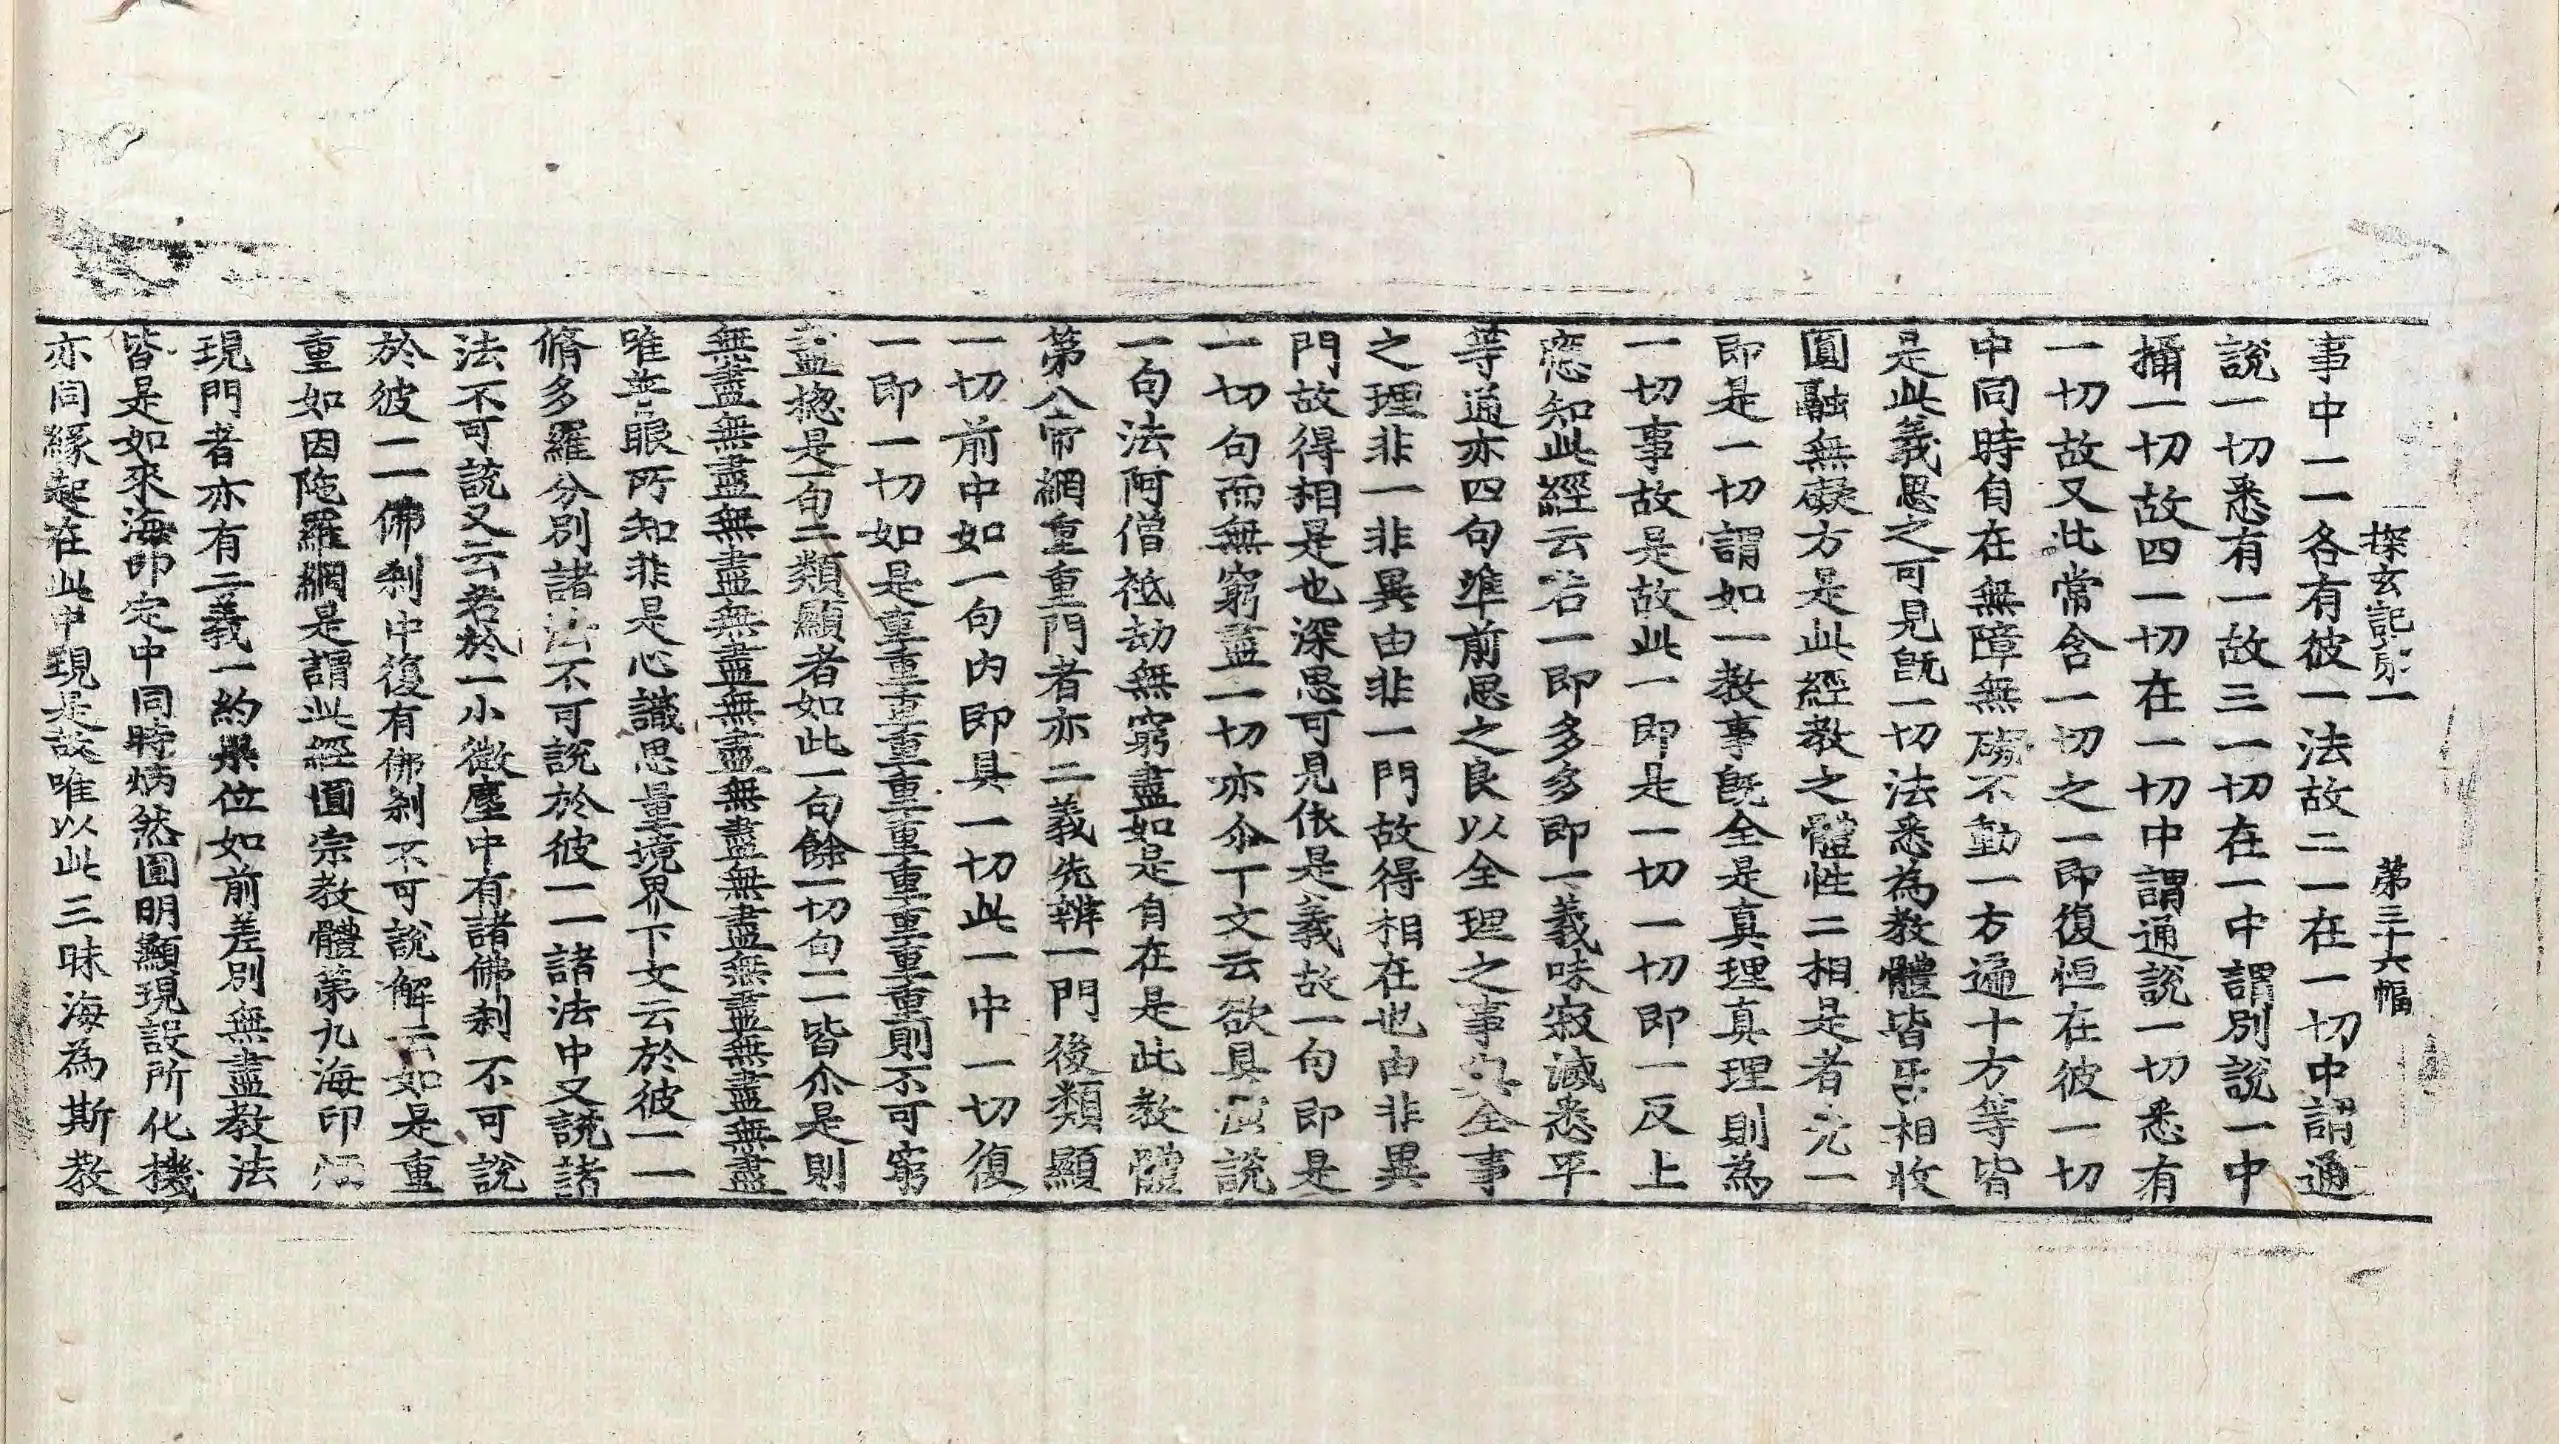 探玄記第一 第三十六幅
事中一一各有彼一法故二一在一切中謂通
說一切悉有一故三一切在一中謂別說一中
攝一切故四一切在一切中謂通說一切悉有
一切故又此常含一切之一即復恒在彼一切
中同時自在無障無礙不動一方遍十方等皆
是此義思之可見旣一切法悉為教體皆互相收
圓融無礙方是此經教之體性二相是者先一
即是一切謂如一教事旣全是真理真理則為
一切事故是故此一即是一切一切即一反上
應知此經云若一即多多即一義味寂滅悉平
等通亦四句準前思之良以全理之事與全事
之理非一非異由非一門故得相在也由非異
門故得相是也深思可見依是義故一句即是
一切句而無窮盡一切亦尒下文云欲具演說
一句法阿僧祇劫無窮盡如是自在是此教體
第八帝網重重門者亦二義先辨一門後類顯
一切前中如一句內即具一切此一中一切復
一即一切如是重重重重重重重重重重則不可窮
盡揔是一句二類顯者如此一句餘一切句一一皆尒是則
無盡無盡無盡無盡無盡無盡無盡無盡無盡無盡
唯普眼所知非是心識思量境界下文云於彼一一
脩多羅分別諸法不可說於彼一一諸法中又說諸
法不可說又云若於一小微塵中有諸佛剎不可說
於彼一一佛剎中復有佛剎不可說解云如是重
重如因陁羅網是謂此經圓宗教體第九海印炳
現門者亦有二義一約果位如前差別無盡教法
皆是如來海印定中同時炳然圓明顯現設所化機
亦同緣起在此中現是故唯以此三昧海為斯教